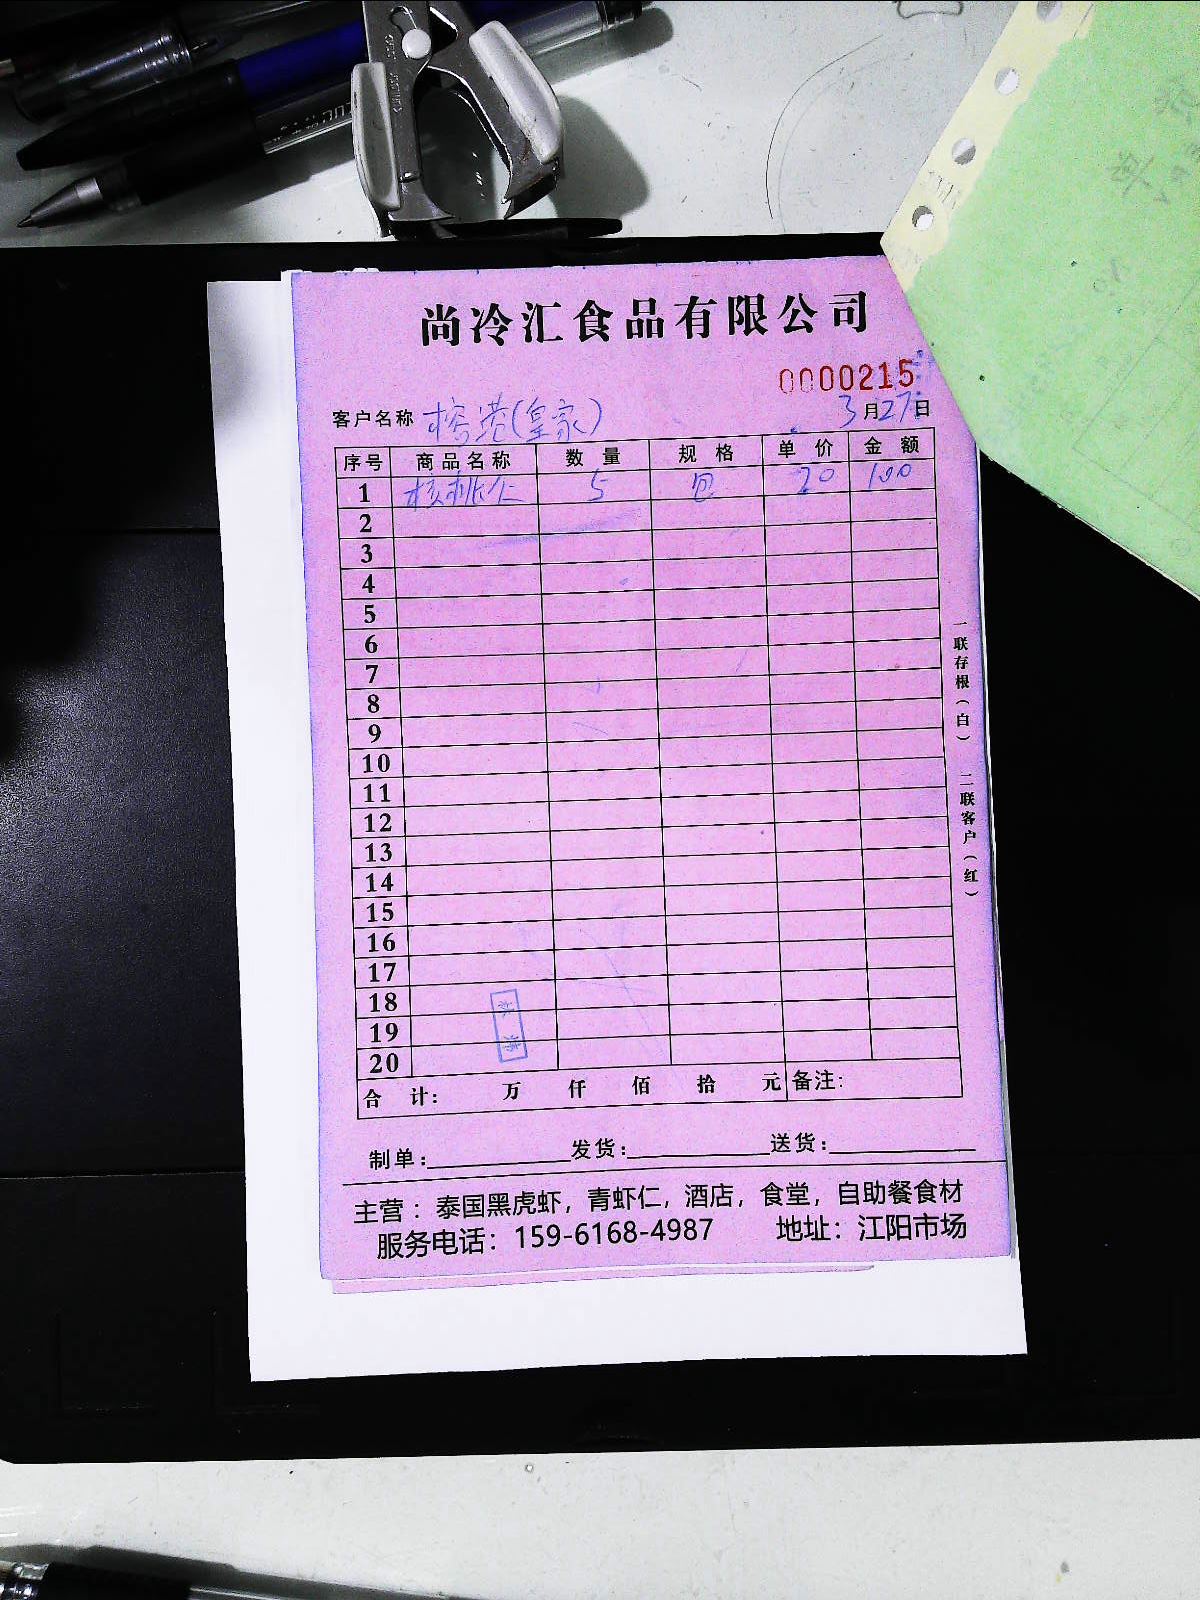 尚冷汇食品有限公司
0000215
客户名称 榕港(皇家) 3月27日
序号 商品名称 数量 规格 单价 金额
1 核桃仁 5 包 20 100
2
3
4
5
6
7
8
9
10
11
12
13
14
15
16
17
18
19
20
合计: 万 仟 佰 拾 元 备注:
制单: 发货: 送货:
主营：泰国黑虎虾，青虾仁，酒店，食堂，自助餐食材
服务电话：159-6168-4987 地址：江阳市场
一联存根（白） 二联客户（红）